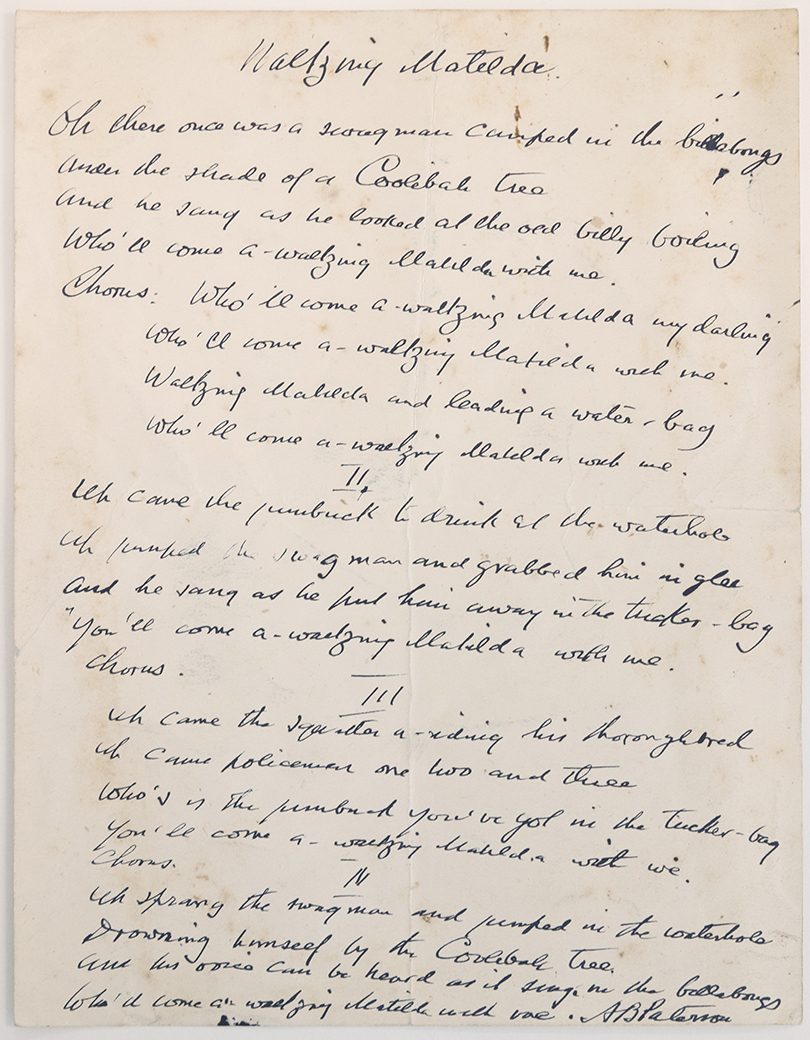 Waltzing Matilda.
Oh there once was a swagman camped in the billabongs
Under the shade of a Coolibah tree
And he sang as he looked at the old billy boiling
Who'll come a-waltzing Matilda with me.
Chorus: Who'll come a-waltzing Matilda my darling
Who'll come a-waltzing Matilda with me.
Waltzing Matilda and leading a water-bag
Who'll come a-waltzing Matilda with me.
II
Up came the jumbuck to drink at the waterhole
Up jumped the swagman and grabbed him in glee
And he sang as he put him away in the tucker-bag
"You'll come a-waltzing Matilda with me.
Chorus.
III
Up came the squatter a-riding his thoroughbred
Up came policeman one two and three
Who's is the jumbuck you've got in the tucker-bag
You'll come a-waltzing Matilda with we.
Chorus.
IV
Up sprang the swagman and jumped in the waterhole
Drowning himself by the Coolibah tree.
And his voice can be heard as it sings in the billabongs
Who'll come a-waltzing Matilda with me. A B Paterson